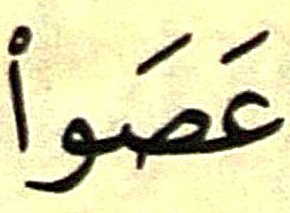 عَصَواْ